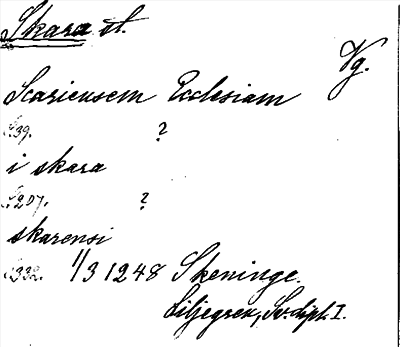 Skara st.
Vg.
Scariensem Ecclesiam
S.39. ?
i skara
S.207. ?
skarensi
S.332. 1/3 1248 Skeninge.
Liljegren, Sv. dipl. I.